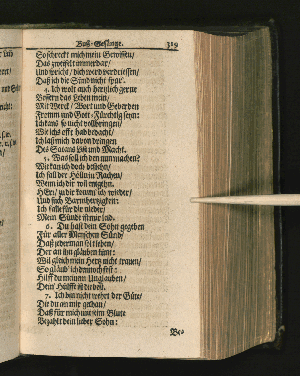 Buß-Gesänge. 319
So schreckt mich mein Gewissen/
Das zweifelt immerdar/
Und spricht/ dich wird verdriessen/
Daß ich die Sünd nicht spar.
4. Ich wolt auch hertzlich gerne
Bessern das Leben mein/
Mit Werck/ Wort und Geberden
Fromm und Gott-Fürchtig seyn:
Ich kans so nicht vollbringen/
Wie ichs offt hab bedacht/
Ich laß mich davon dringen
Des Satans List und Macht.
5. Was soll ich den nun machen?
Wie kan ich doch bestehen/
Ich fall der Höll in Rachen/
Wenn ich dir woll entgehn.
HErr/ zu dir komm ich wieder/
Und such Barmhertzigkeit:
Ich falle für dir nieder/
Mein Sünde ist mir leid.
6. Du hast dein Sohn gegeben
Für aller Menschen Sünd/
Daß jederman sol leben/
Der an ihn gläuben künt:
Wil gleich mein Hertz nicht trauen/
So gläub' ich dennoch fest:
Hilff du meinem Unglauben/
Dein Hülffe ist die best.
7. Ich bin nicht wehrt der Güte/
Die du an mir gethan/
Daß für mich mit seim Blute
Bezahlt dein lieber Sohn: